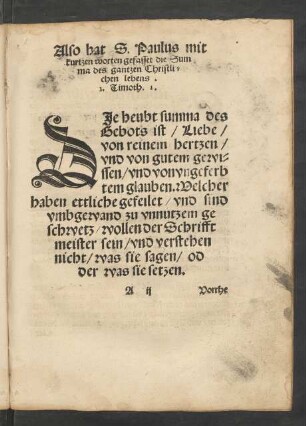 Also hat S. Paulus mit
kurtzen worten gefasset die Sum
ma des gantzen Christli-
chen lebens.
1. Timoth. 1.
DIe heubt summa des
Gebots ist / Liebe /
von reinem hertzen /
vnd von gutem gewis-
sen / vnd von vngeferb
tem glauben. Welcher
haben ettliche gefeilet / vnd sind
vmbgewand zu vnnutzem ge
schwetz / wollen der Schrifft
meister sein / vnd verstehen
nicht / was sie sagen / od
der was sie setzen.
A ij
Vorrhe